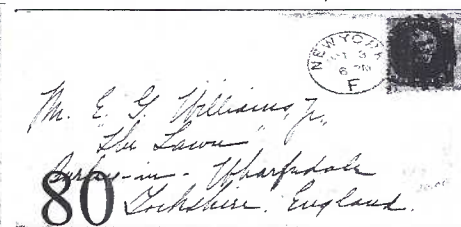 NEW YORK
6
F
Mr. E. G. Williams, Jr.,
"The Lawn"
-in-Wharfedale
Yorkshire. England.
80